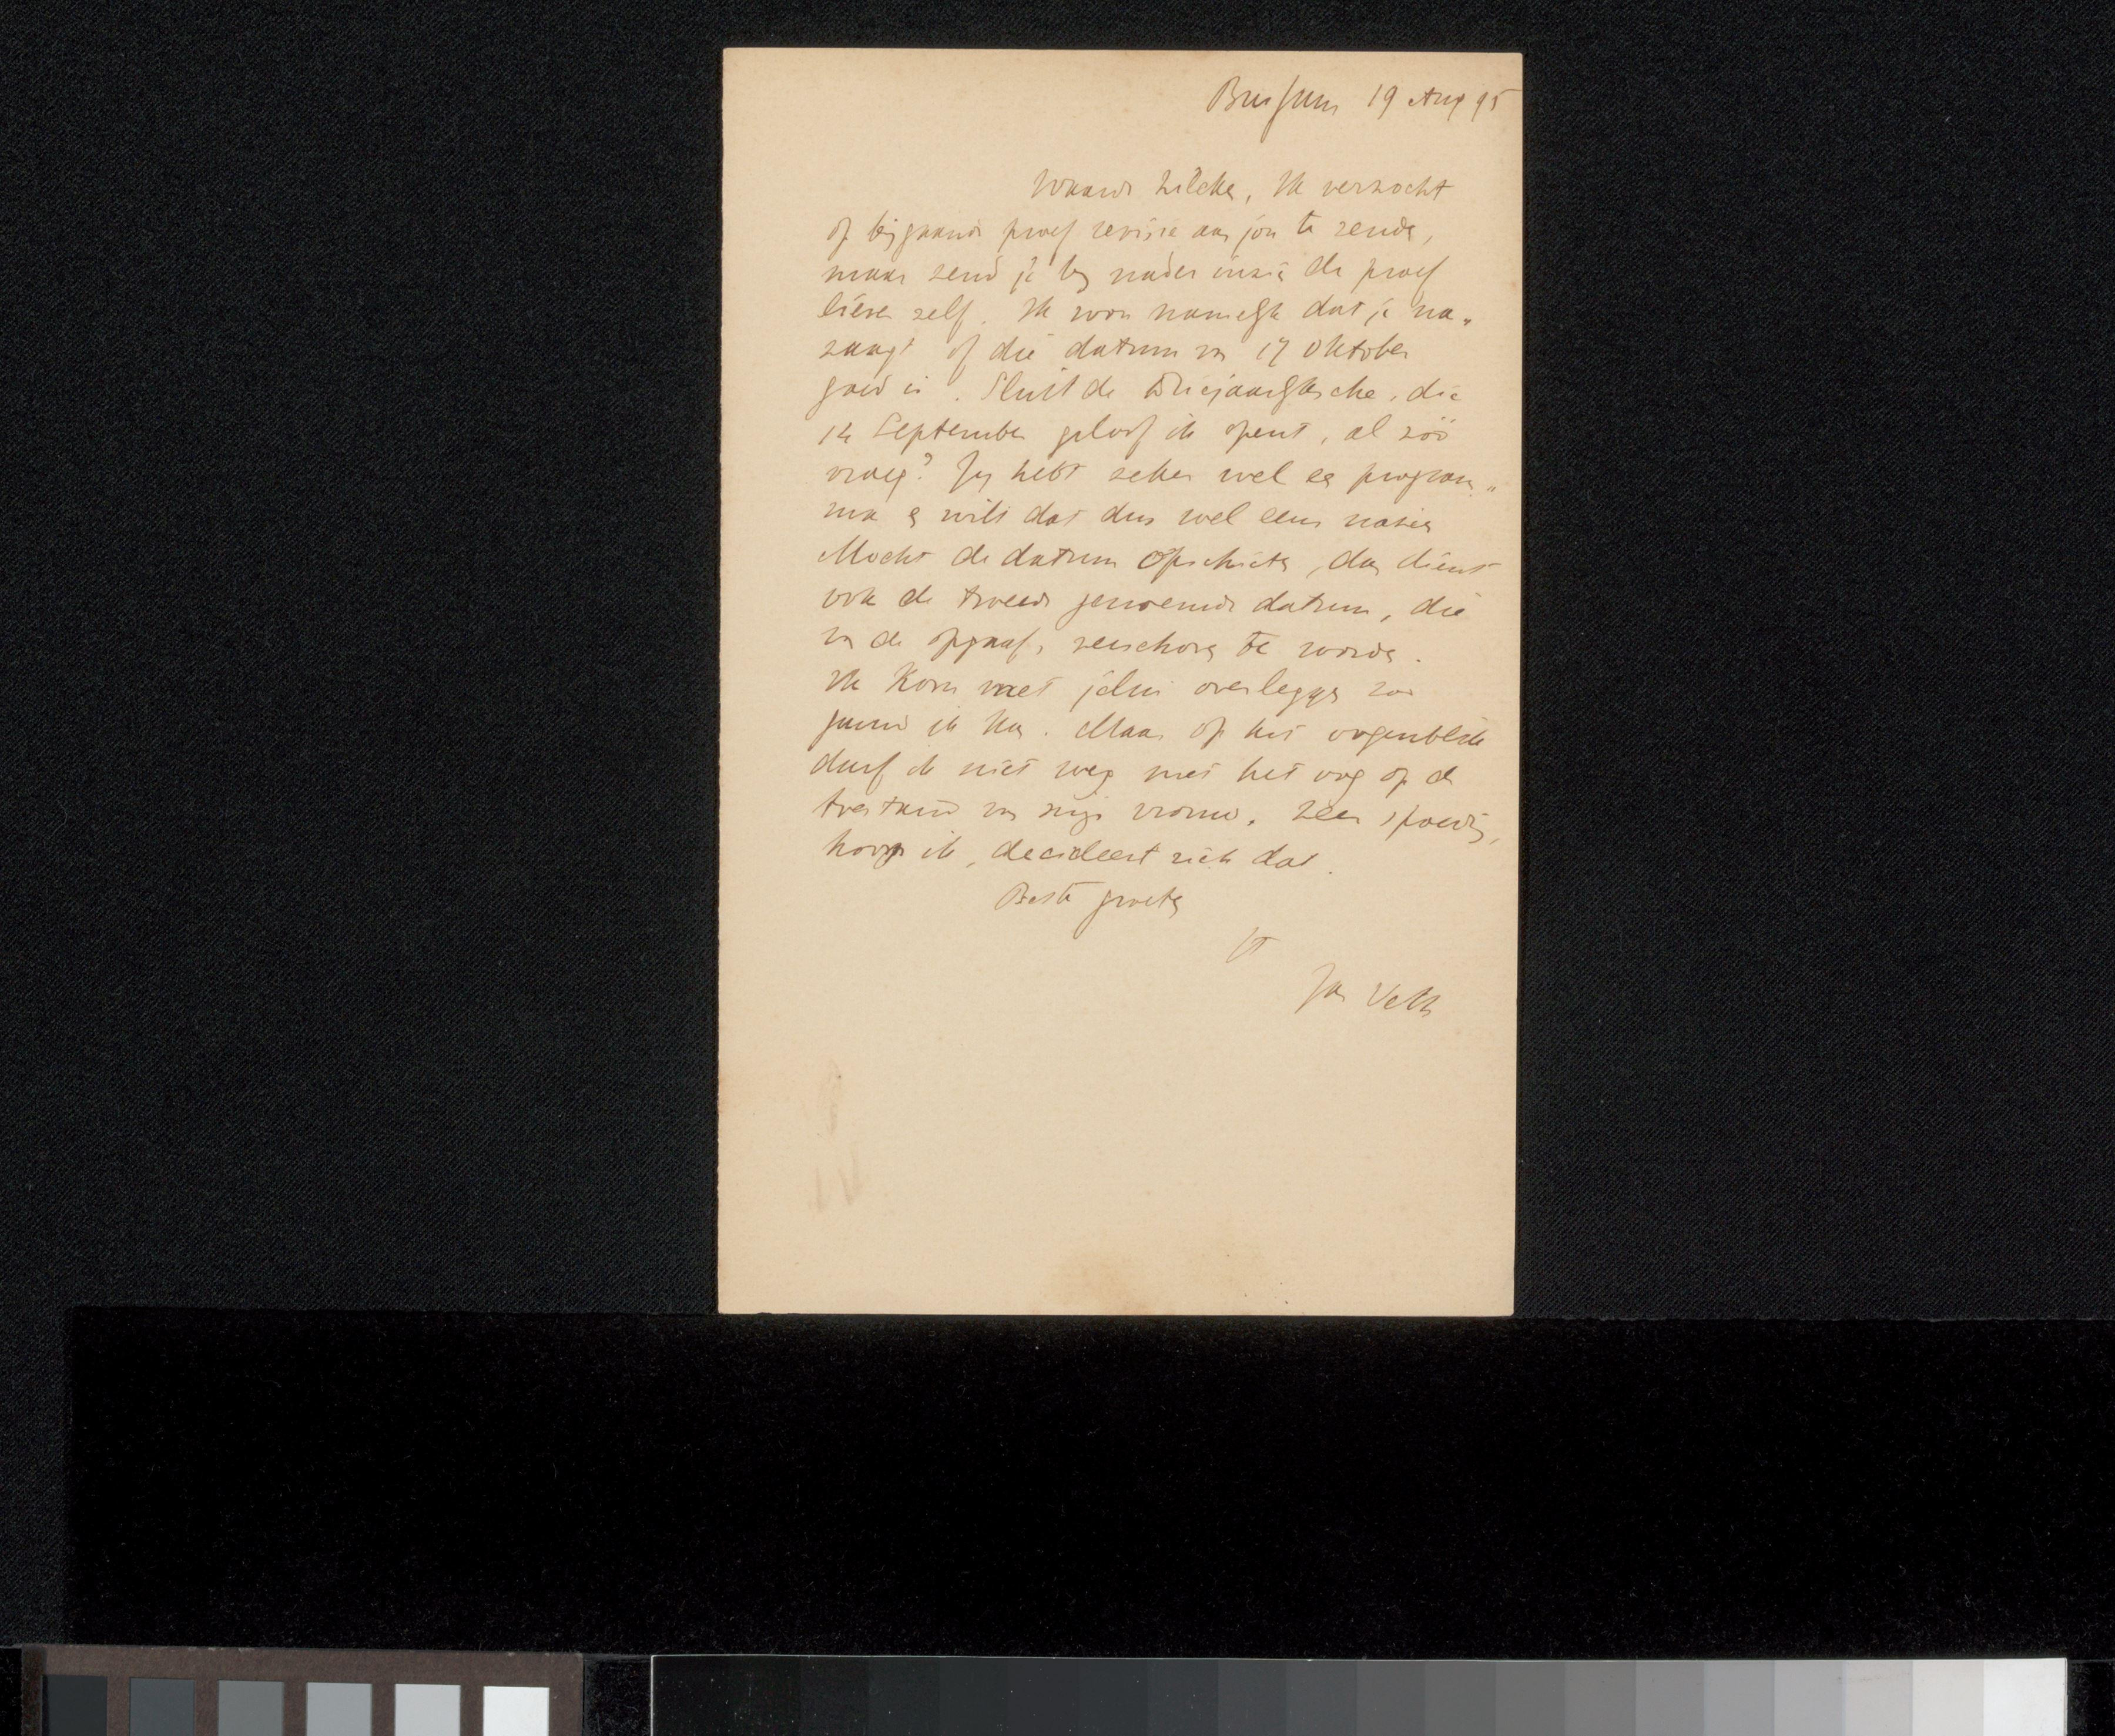 Bussum 19 Aug 95
Waarde Zilcken, Ik verzocht
of bijgaande proef revisie aan jou te zenden,
maar zend je bij nader inzien de proef
liever zelf. Ik wou namelijk dat je na„
zaagt of die datum van 17 Oktober
goed is. Sluit de driejaarlijksche, die
14 September geloof ik opent, al zóó
vroeg? Jij hebt zeker wel een program„
ma en wilt dat dus wel eens nazien
Mocht de datum opschieten, dan dient
ook de tweede genoemde datum, die
van de opgaaf, verschoven te worden.
Ik kom met jelui overleggen zoo
gauw ik kan. Maar op het oogenblik
durf ik niet weg met het oog op de
toestand van mijn vrouw. Zeer spoedig,
hoop ik, decideert zich dat.
Beste groeten
tt
Jan Veth